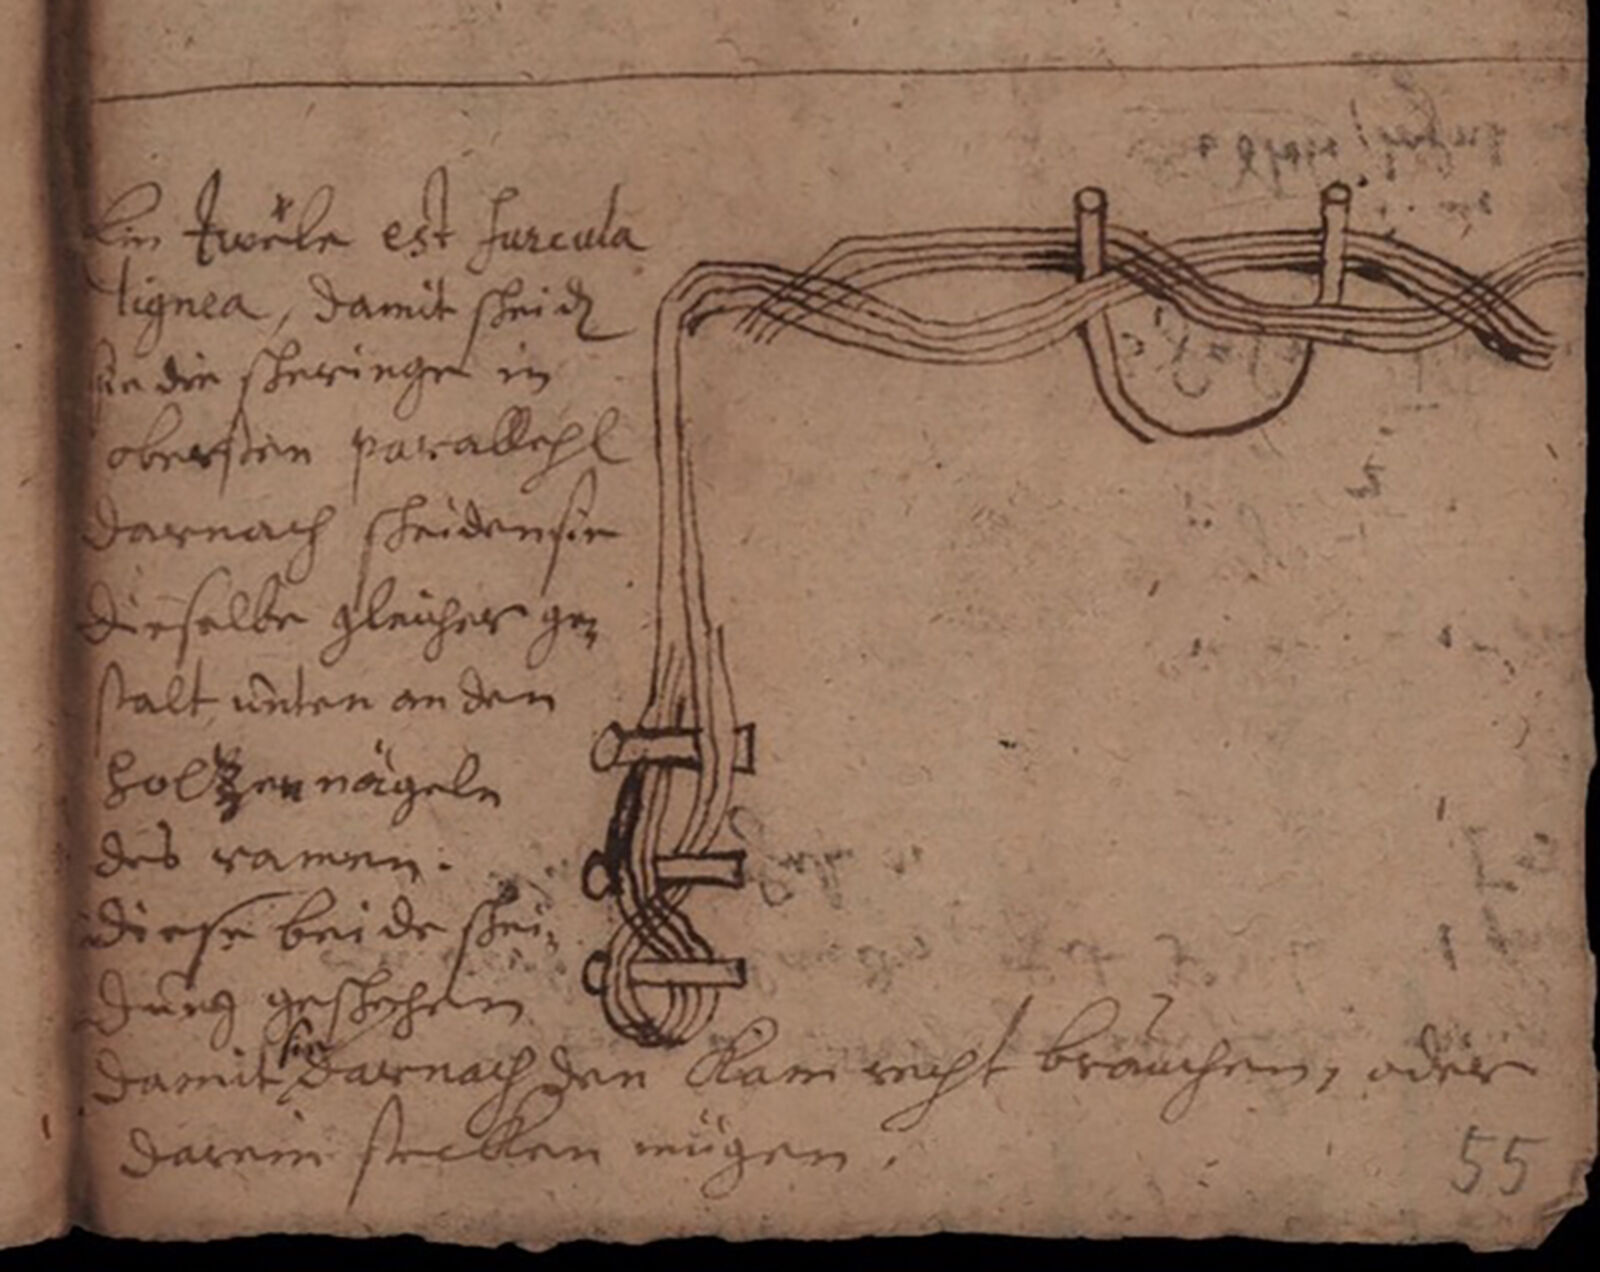 Ein twele est furcula
lignea, damit scheid
sie die scheringe in
obersten parallehl
darnach scheiden sie
dieselbe gleicher ge-
stalt unten an den
holtzern nägeln
des ramen.
diese beide schei-
dung geschehen
damit sie darnach den Kam recht brauchen, oder
darein stecken mügen.
55